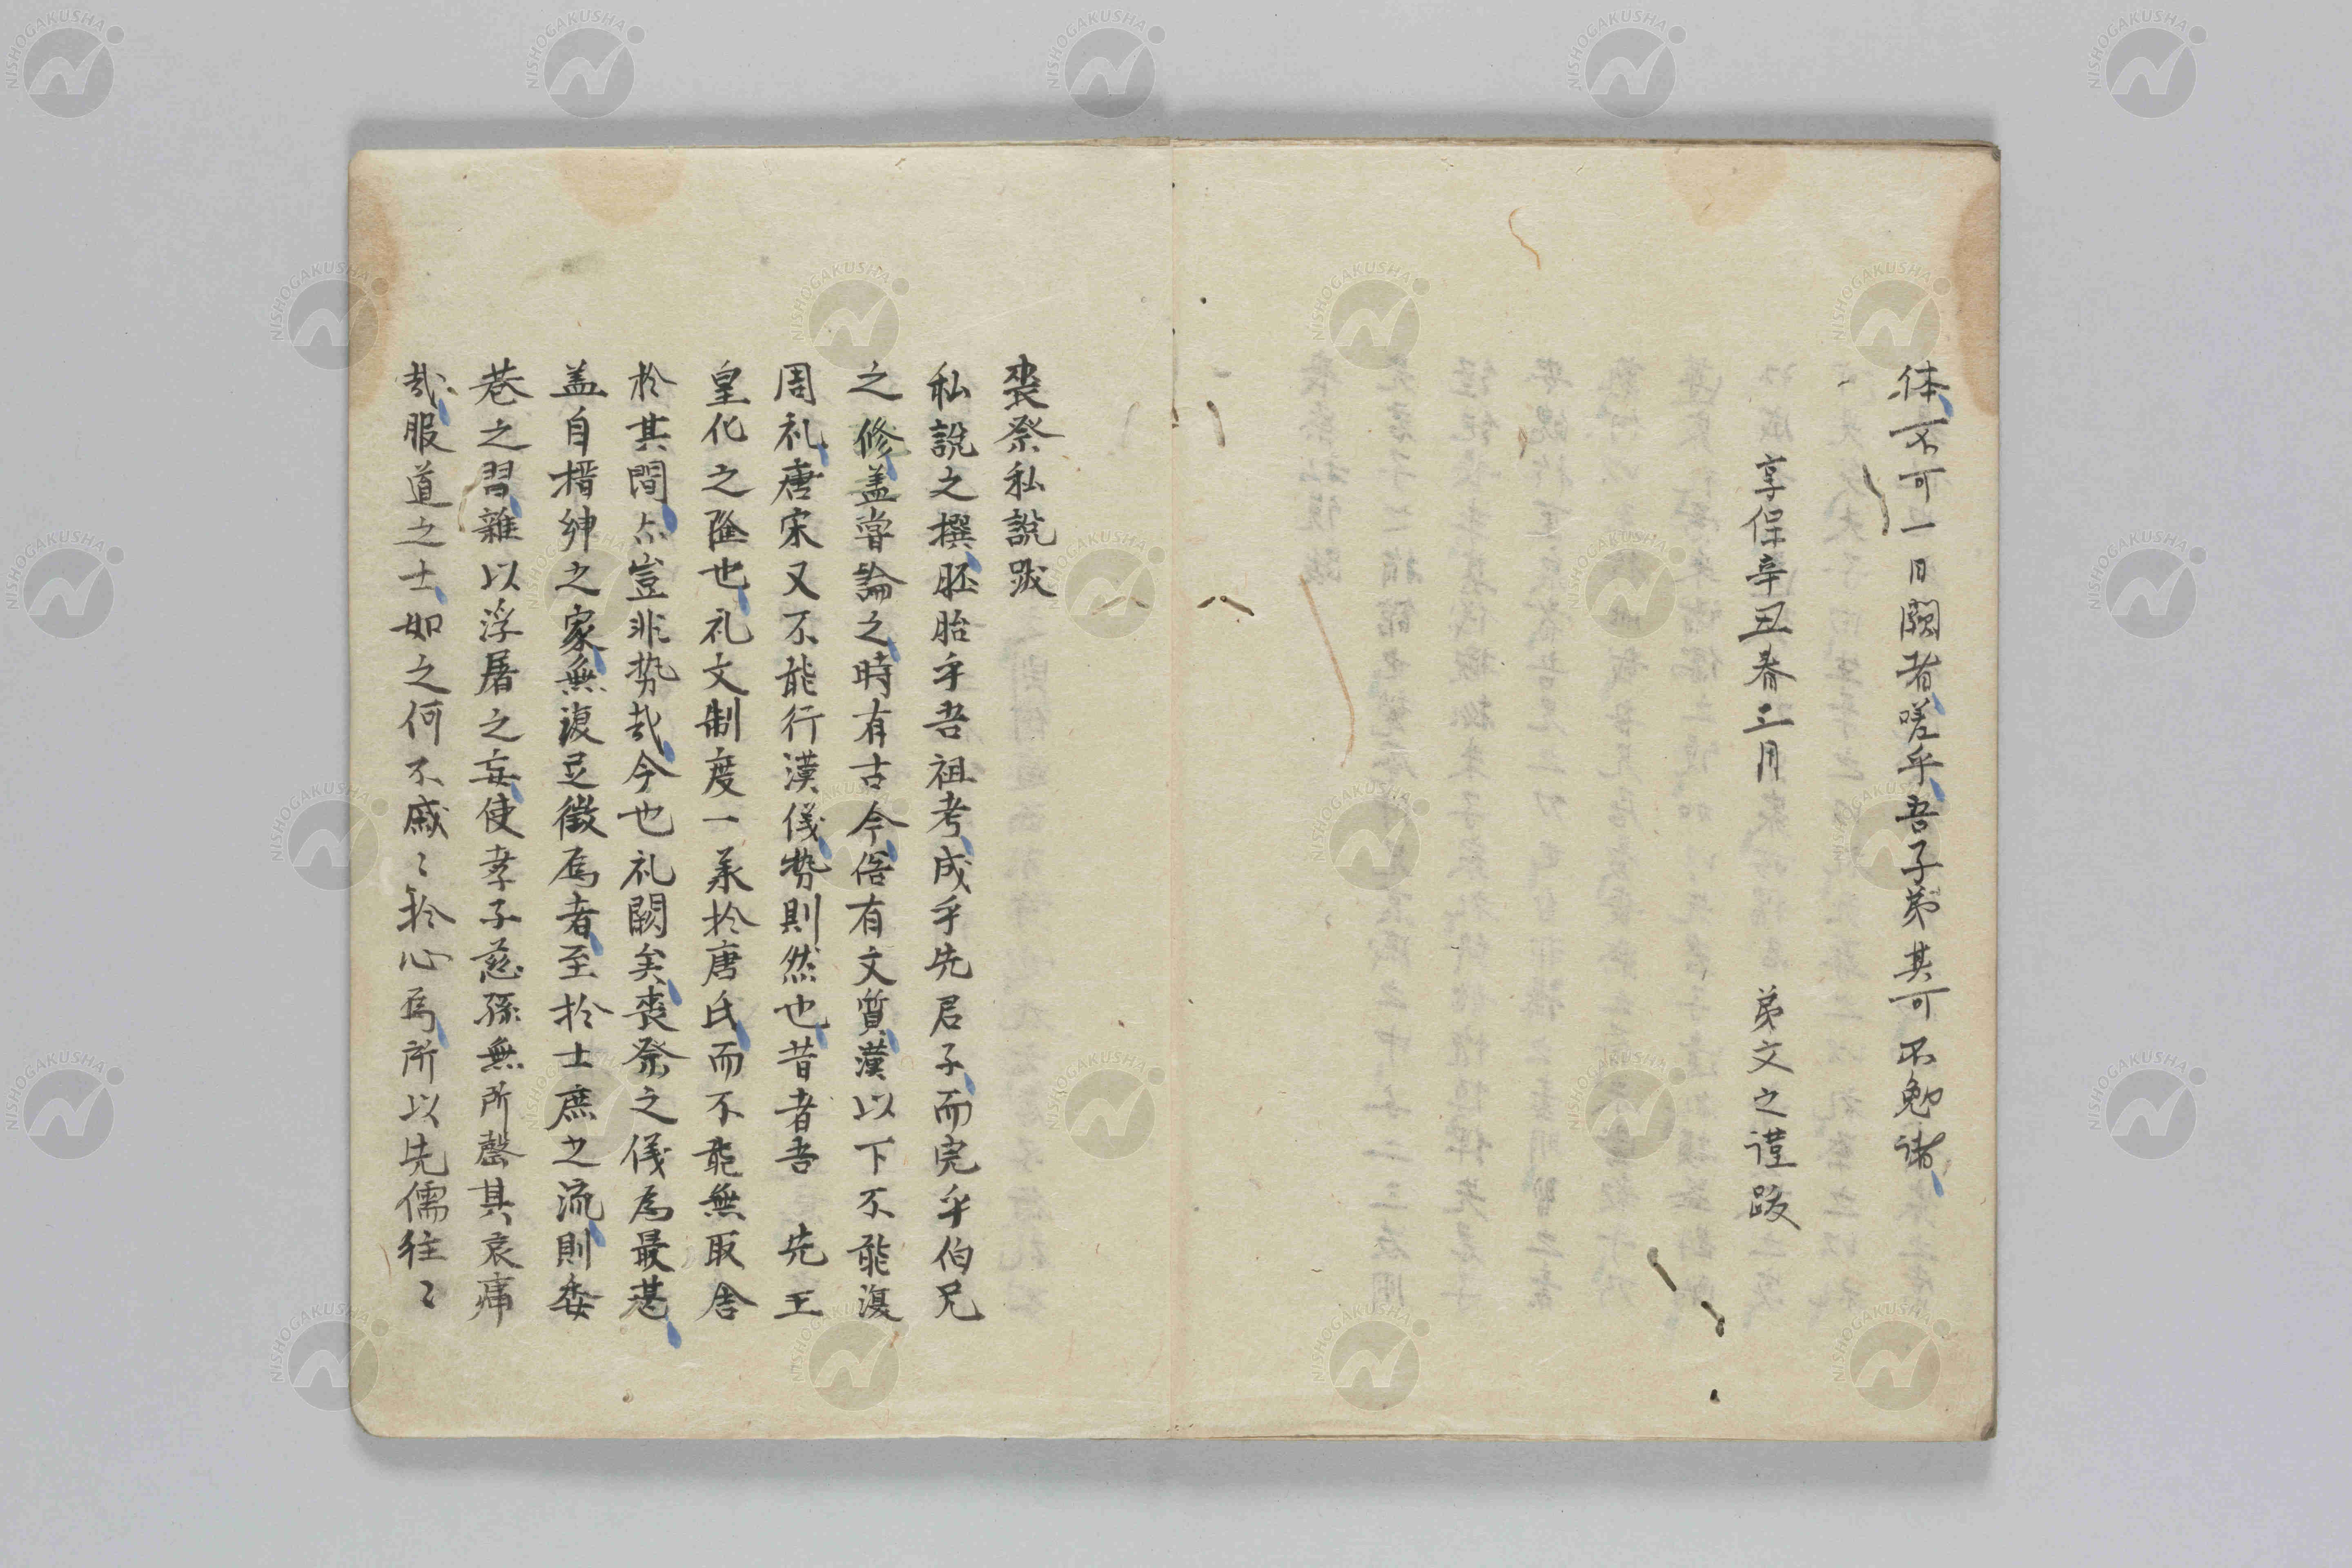 体不可一日闕者嗟乎吾子弟其可不勉諸
享保辛丑春三月 弟文之謹跋
喪祭私說跋
私說之撰胚胎乎吾祖考成乎先君子而完乎伯兄
之修盖嘗論之時有古今俗有文質漢以下不能復
周礼唐宋又不能行漢儀勢則然也昔者吾 先王
皇化之隆也礼文制度一承於唐氏而不能無取舍
於其間亦豈非勢哉今也礼闕矣喪祭之儀為最甚
盖自搢紳之家無復足徵焉者至於士庶之流則委
巷之習雜以浮屠之妄使孝子慈孫無所罄其哀痛
哉服道之士如之何不戚〻於心焉所以先儒往〻
NISHOGAKUSHA